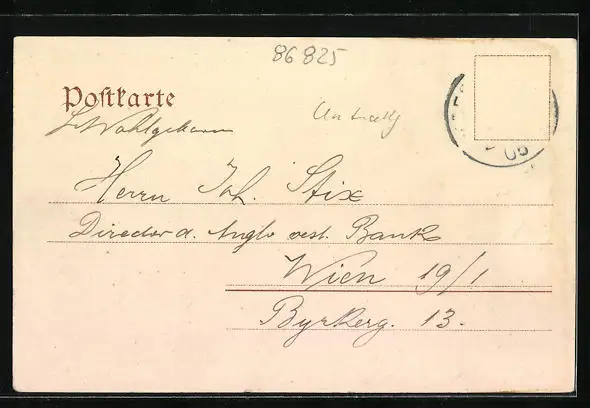 86825
Postkarte
Sr Wohlgeboren
Herrn Joh. Stix
Director d. Anglo oest. Bank
Wien 19/1
Byrkerg. 13.
05